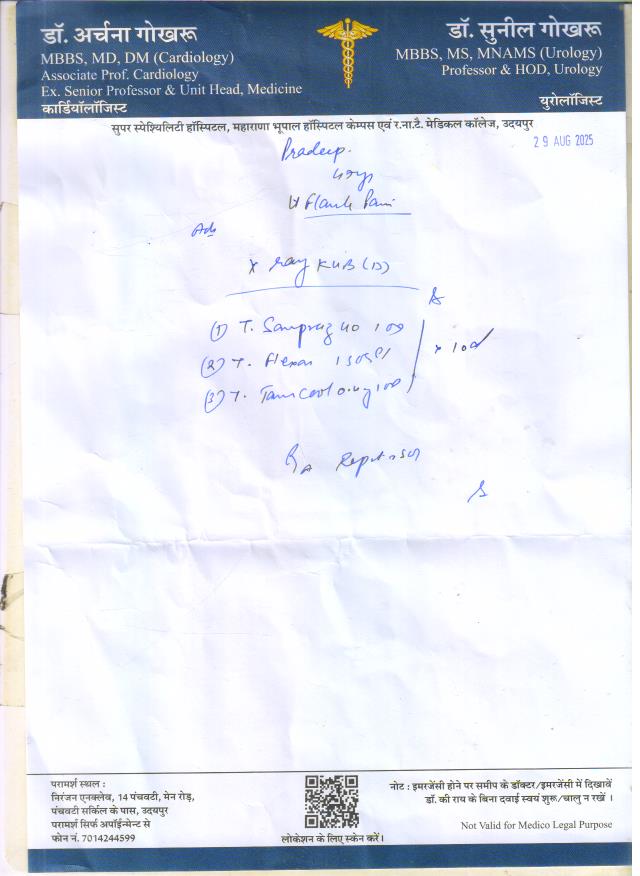 डॉ. अर्चना गोखरू
MBBS, MD, DM (Cardiology)
Associate Prof. Cardiology
Ex. Senior Professor & Unit Head, Medicine
कार्डियॉलॉजिस्ट
डॉ. सुनील गोखरू
MBBS, MS, MNAMS (Urology)
Professor & HOD, Urology
युरोलॉजिस्ट
सुपर स्पेश्यिलिटी हॉस्पिटल, महाराणा भूपाल हॉस्पिटल केम्पस एवं र.ना.टै. मेडिकल कॉलेज, उदयपुर
29 AUG 2025
Pradeep.
Flank Pain
Adv
X ray KUB (D)
(1) T. 40
(2) T.
(3) T. 0.4
x 10d
परामर्श स्थल :
निरंजन एनक्लेव, 14 पंचवटी, मेन रोड़,
पंचवटी सर्किल के पास, उदयपुर
परामर्श सिर्फ अपॉईन्मेन्ट से
फोन नं. 7014244599
लोकेशन के लिए स्केन करें।
नोट : इमरजेंसी होने पर समीप के डॉक्टर/इमरजेंसी में दिखावें
डॉ. की राय के बिना दवाई स्वयं शुरू/चालु न रखें ।
Not Valid for Medico Legal Purpose